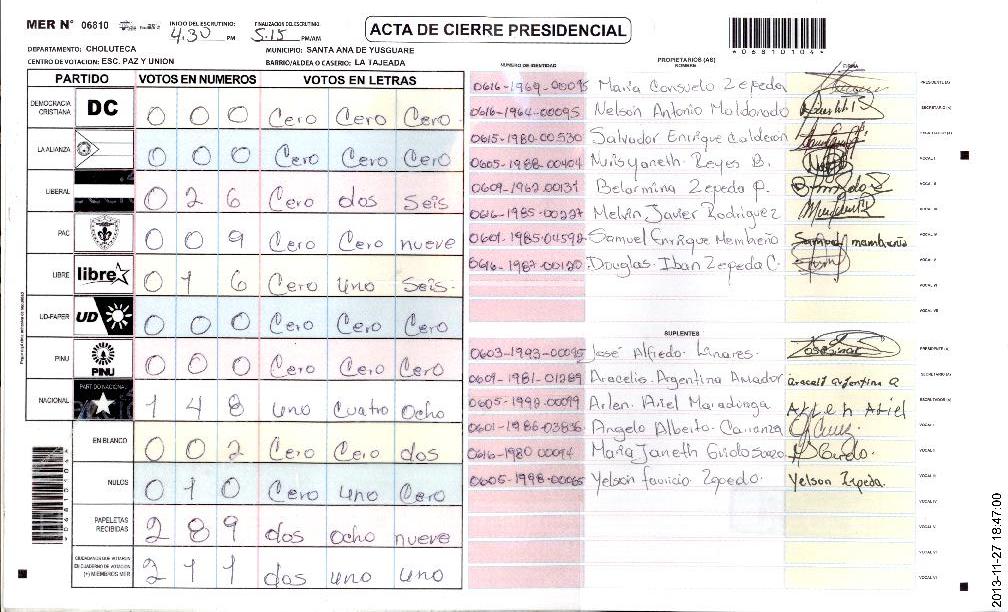 MER N° 06810
INICIO DEL ESCRUTINIO: 4.30 PM
FINALIZACION DEL ESCRUTINIO: 5.15 PM/AM
ACTA DE CIERRE PRESIDENCIAL
*06810104*
DEPARTAMENTO: CHOLUTECA
MUNICIPIO: SANTA ANA DE YUSGUARE
CENTRO DE VOTACION: ESC. PAZ Y UNION
BARRIO/ALDEA O CASERIO: LA TAJEADA
PARTIDO VOTOS EN NUMEROS VOTOS EN LETRAS
DEMOCRACIA CRISTIANA DC 0 0 0 Cero Cero Cero
LA ALIANZA 0 0 0 Cero Cero Cero
LIBERAL 0 2 6 Cero dos Seis
PAC 0 0 9 Cero Cero nueve
LIBRE libre 0 1 6 Cero uno Seis
UD-FAPER UD 0 0 0 Cero Cero Cero
PINU PINU 0 0 0 Cero Cero Cero
NACIONAL PARTIDO NACIONAL 1 4 8 uno Cuatro Ocho
EN BLANCO 0 0 2 Cero Cero dos
NULOS 0 1 0 Cero uno Cero
PAPELETAS RECIBIDAS 2 8 9 dos ocho nueve
CIUDADANOS QUE VOTARON EN CUADERNO DE VOTACION (+) MIEMBROS MER 2 1 1 dos uno uno
PROPIETARIOS (AS)
NUMERO DE IDENTIDAD NOMBRE FIRMA
0616-1969-00095 Maria Consuelo Zepeda PRESIDENTE (A)
0616-1964-00095 Nelson Antonio Maldonado SECRETARIO (A)
0615-1980-00530 Salvador Enrique Calderon
0605-1988-00404 Reyes B. VOCAL I
0609-1962-00131 Belarmina Zepeda P. VOCAL II
0616-1985-00227 Melvin Javier Rodriguez VOCAL III
0601-1985-04592 Samuel Enrique Membreño Samuel membreño VOCAL IV
0616-1987-00120 Douglas Iban Zepeda C. VOCAL V
VOCAL VI
VOCAL VII
SUPLENTES
0603-1993-00095 José Alfredo Linares PRESIDENTE (A)
0609-1981-01289 Aracelis Argentina Amador araceli argentina a SECRETARIO (A)
0605-1998-00099 Arlen Ariel Maradiaga Arlen Ariel ESCRUTADOR (A)
0601-1986-03836 Angelo Alberto Carranza VOCAL I
0616-1980 00094 Maria Janeth VOCAL II
0605-1998-00065 Yelson Yelson Zepeda VOCAL III
VOCAL IV
VOCAL V
VOCAL VI
VOCAL VII
*06810104*
2013-11-27 18:47:00